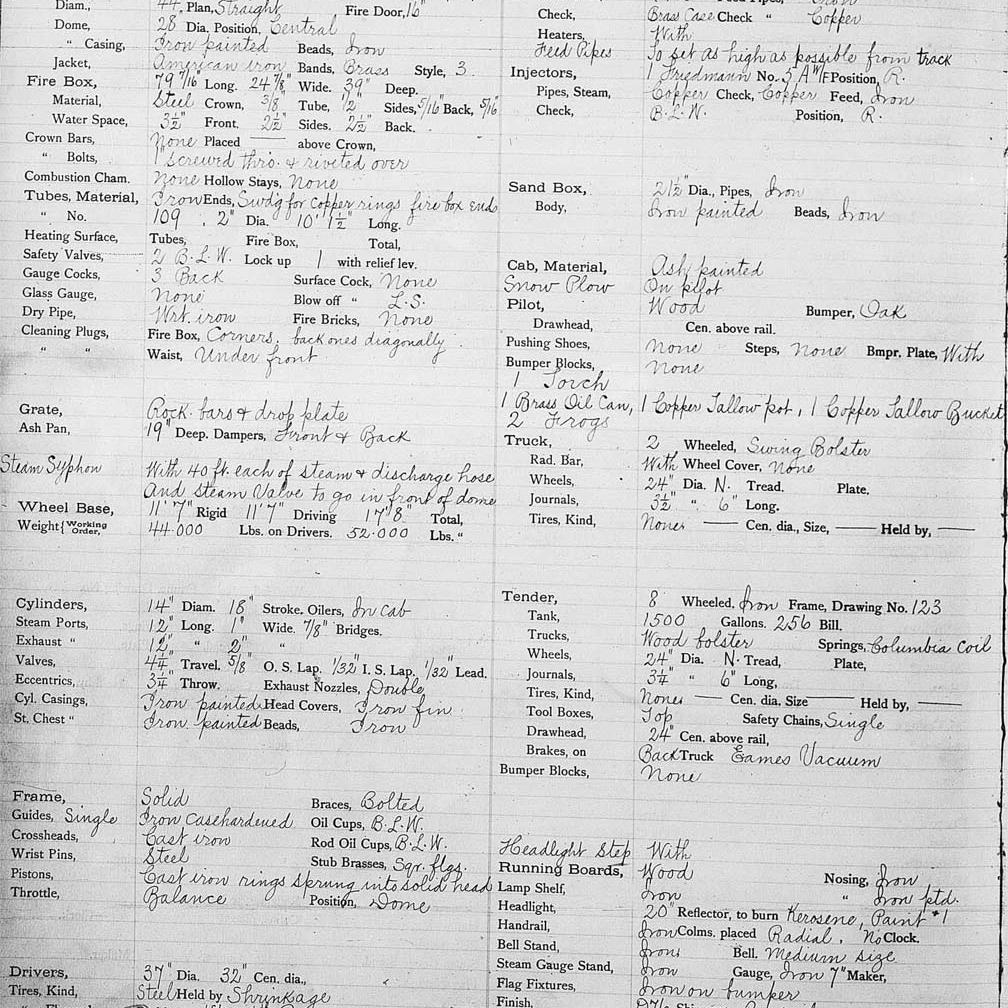 Diam., 44" Plan, Straight Fire Door, 16"
Dome, 28" Dia. Position, Central
" Casing, Iron painted Beads, Iron
Jacket, American iron Bands, Brass Style, 3
Fire Box, 79 7/16" Long. 24 7/8" Wide. 39" Deep.
Material, Steel Crown, 3/8" Tube, 1/2" Sides, 5/16" Back, 5/16"
Water Space, 3½" Front. 2½" Sides. 2½" Back.
Crown Bars, None Placed — above Crown,
" Bolts, 1" screwed thro. & riveted over
Combustion Cham. None Hollow Stays, None
Tubes, Material, Iron Ends, Swd'g for copper rings fire box end
" No. 109 . 2" Dia. 10' 1½" Long.
Heating Surface, Tubes, Fire Box, Total,
Safety Valves, 2 B.L.W. Lock up 1 with relief lev.
Gauge Cocks, 3 Back Surface Cock, None
Glass Gauge, None Blow off " L.S.
Dry Pipe, Wrt. iron Fire Bricks, None
Cleaning Plugs, Fire Box, Corners, back ones diagonally
" " Waist, Under front
Grate, Rock. bars & drop plate
Ash Pan, 19" Deep. Dampers, Front & Back
Steam Syphon With 40 ft. each of steam & discharge hose
And steam Valve to go in front of dome
Wheel Base, 11' 7" Rigid 11' 7" Driving 17' 8" Total,
Weight { Working Order, 44.000 Lbs. on Drivers. 52.000 Lbs. "
Cylinders, 14" Diam. 18" Stroke. Oilers, In cab
Steam Ports, 12" Long. 1" Wide. 7/8" Bridges.
Exhaust " 12" " 2" "
Valves, 4¼" Travel. 5/8" O. S. Lap. 1/32" I. S. Lap. 1/32" Lead.
Eccentrics, 3¼" Throw. Exhaust Nozzles, Double
Cyl. Casings, Iron painted Head Covers, Iron fin.
St. Chest " Iron painted Beads, Iron
Frame, Solid Braces, Bolted
Guides, Single Iron Casehardened Oil Cups, B.L.W.
Crossheads, Cast iron Rod Oil Cups, B.L.W.
Wrist Pins, Steel Stub Brasses, Sqr. flgs.
Pistons, Cast iron rings sprung into solid head
Throttle, Balance Position, Dome
Drivers, 37" Dia. 32" Cen. dia.,
Tires, Kind, Steel Held by Shrinkage
Check, Brass Case Check " Copper
Heaters, With
Feed Pipes To set as high as possible from track
Injectors, 1 Friedmann No. 5 Position, R.
Pipes, Steam, Copper Check, Copper Feed, Iron
Check, B.L.W. Position, R.
Sand Box, 21½" Dia., Pipes, Iron
Body, Iron painted Beads, Iron
Cab, Material, Ash painted
Snow Plow On pilot
Pilot, Wood Bumper, Oak
Drawhead, Cen. above rail.
Pushing Shoes, None Steps, None Bmpr. Plate, With
Bumper Blocks, None
1 Torch
1 Brass Oil Can, 1 Copper Tallow pot, 1 Copper Tallow Bucket
2 Frogs
Truck, 2 Wheeled, Swing Bolster
Rad. Bar, With Wheel Cover, None
Wheels, 24" Dia. N. Tread. Plate.
Journals, 3½" " 6" Long.
Tires, Kind, None — Cen. dia., Size, — Held by, —
Tender, 8 Wheeled, Iron Frame, Drawing No. 123
Tank, 1500 Gallons. 256 Bill.
Trucks, Wood bolster Springs, Columbia Coil
Wheels, 24" Dia. N. Tread, Plate,
Journals, 3¼" " 6" Long,
Tires, Kind, None — Cen. dia. Size — Held by, —
Tool Boxes, Top Safety Chains, Single
Drawhead, 24" Cen. above rail,
Brakes, on Back Truck Eames Vacuum
Bumper Blocks, None
Headlight Step With
Running Boards, Wood Nosing, Iron
Lamp Shelf, Iron " Iron ptd.
Headlight, 20" Reflector, to burn Kerosene, Paint #1
Handrail, Iron Colms. placed Radial. No Clock.
Bell Stand, Iron Bell. Medium size
Steam Gauge Stand, Iron Gauge, Iron 7" Maker,
Flag Fixtures, Iron on bumper
Finish,